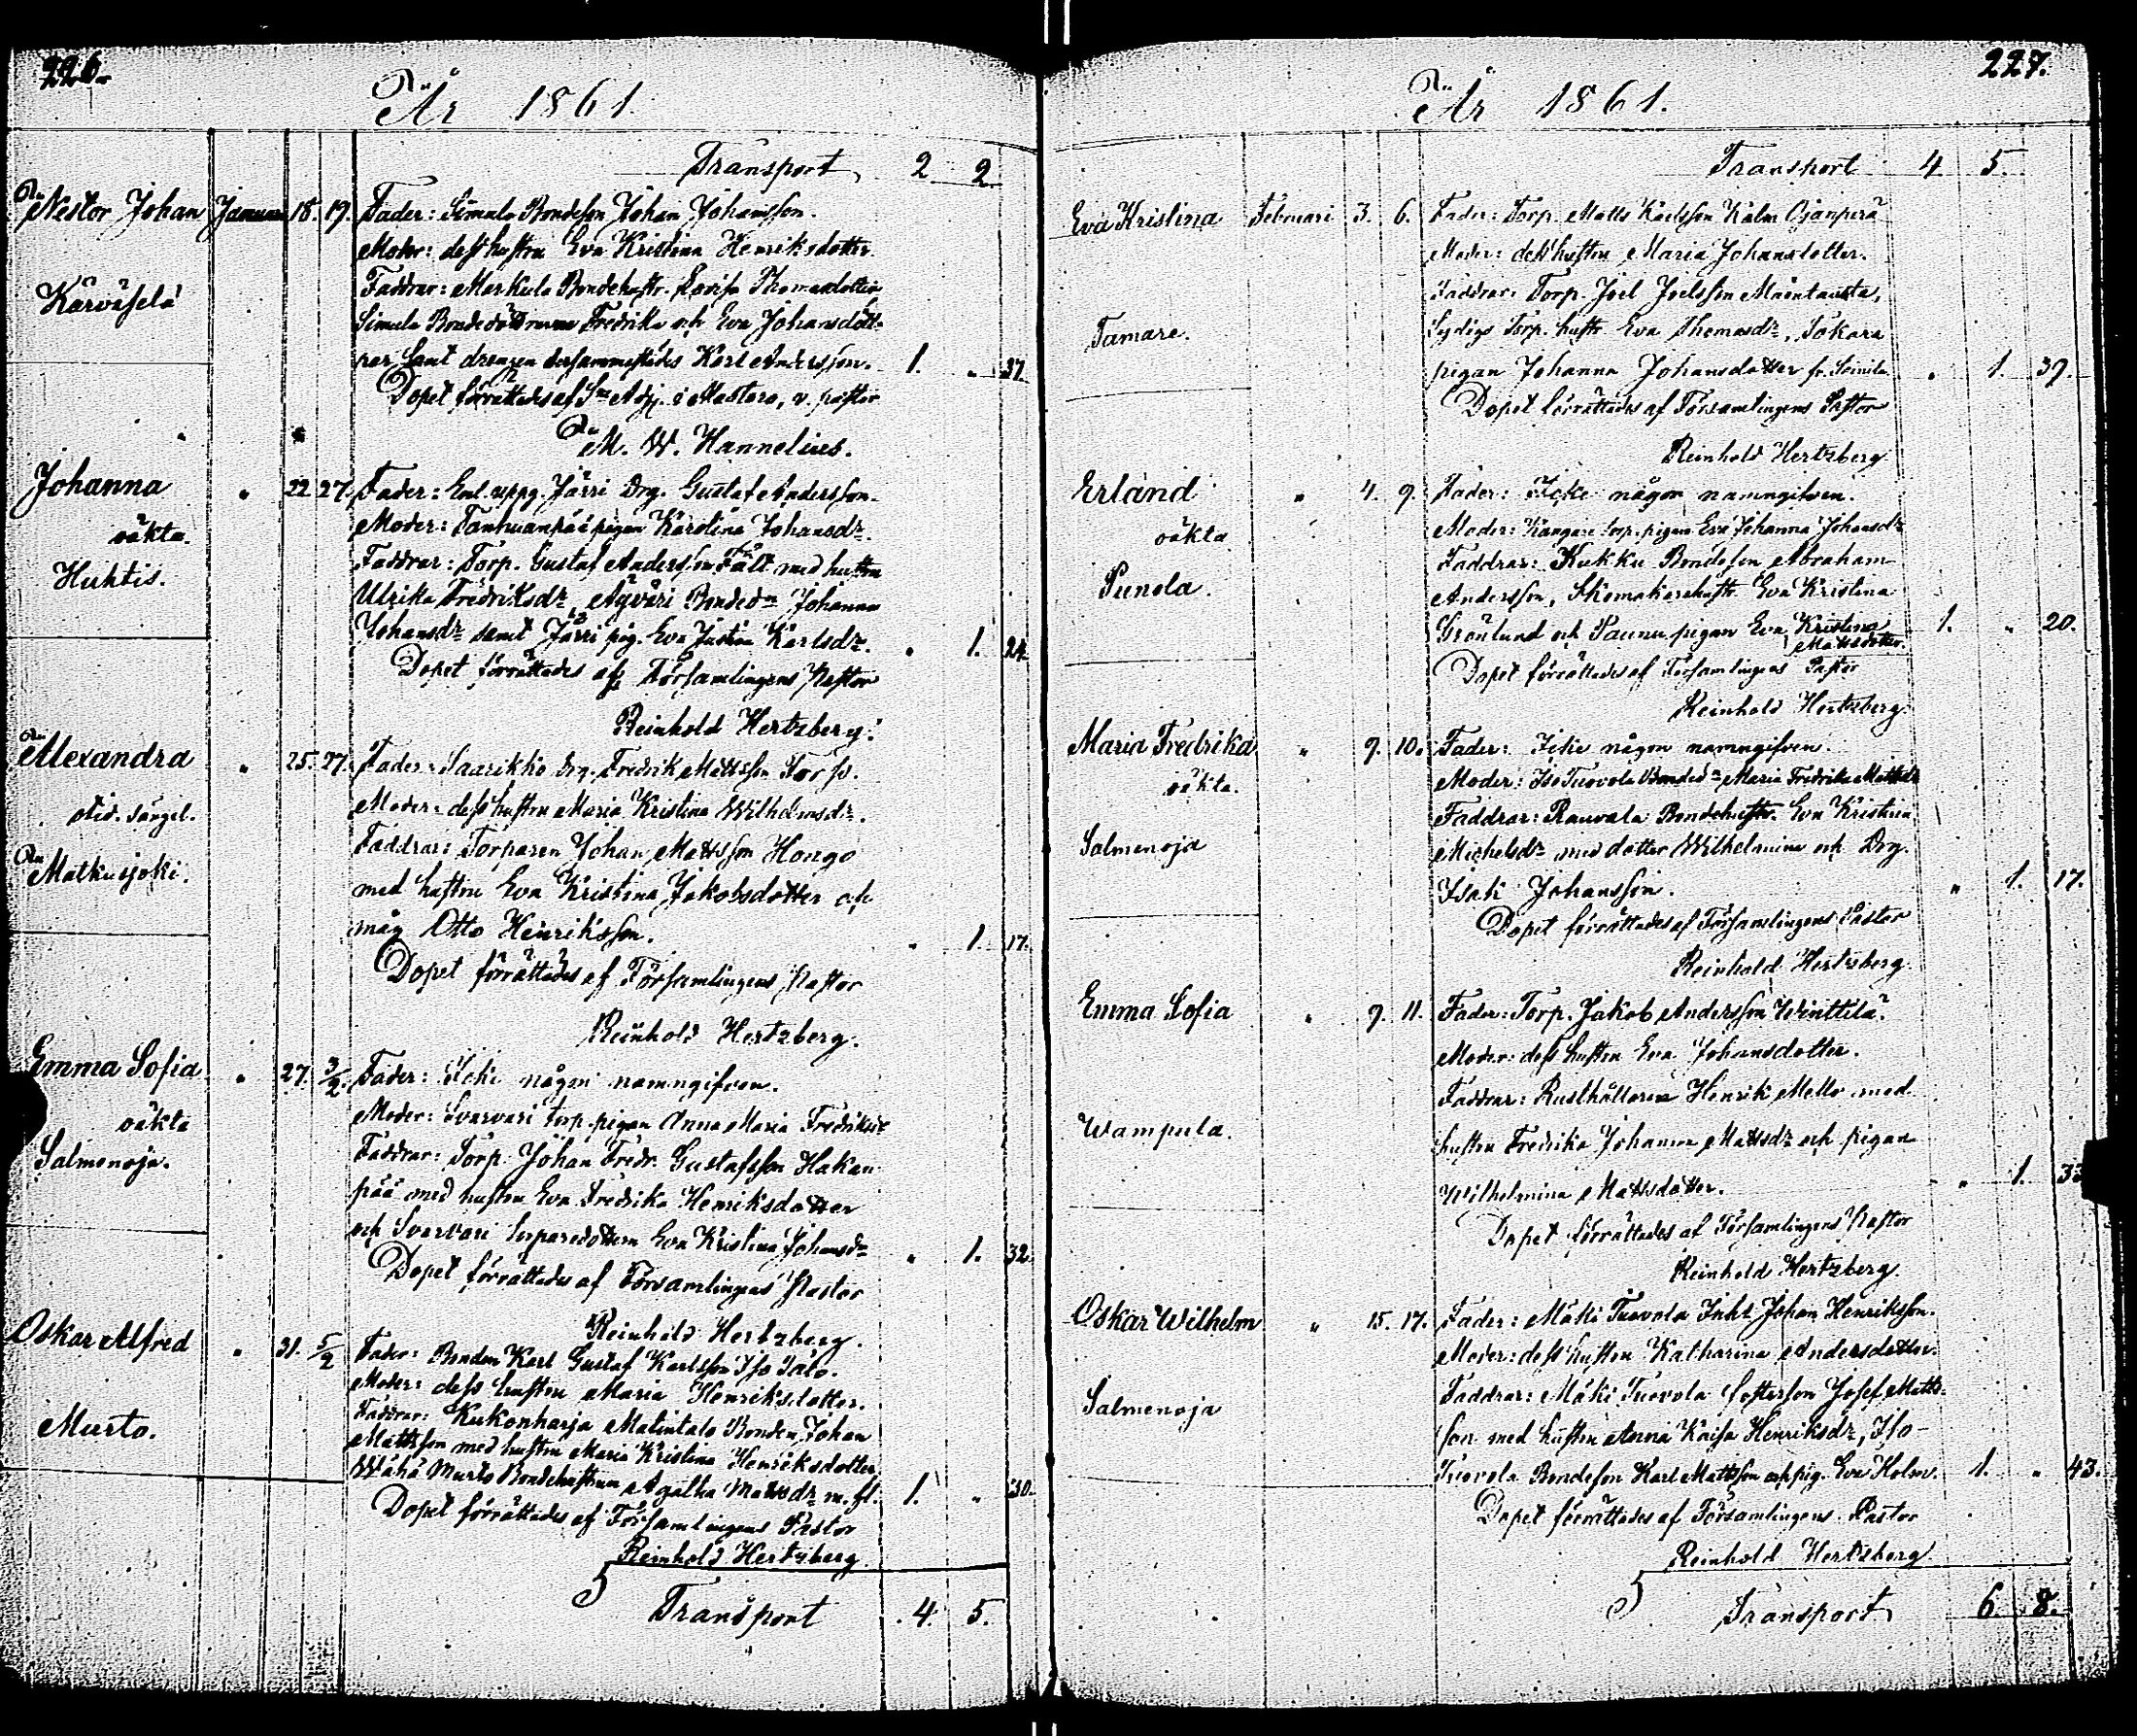 226.
År 1861.
Transport 2 2
Nestor Johan Januari 18. 19. Fader: Simula Bondeson Johan Johansson.
Moder: dess hustru Eva Kristina Henriksdotter.
Kärväselä
Faddrar: Markula Bondehustr. Lovisa Thomasdotter
Simula Bondedöttrarne Fredrika och Eva Johansdött-
rar samt drengen dersammastädes Karl Andersson. 1. „ 37.
Dopet förrättades af Adj. i v. pastor
M. W. Hannelius.
Johanna „ 22. 27. Fader: Enl. uppg. Järri Drg. Gustaf Andersson.
oäkta. Moder: Tanhuanpää pigan Karolina Johansdr.
Huhtis. Faddrar: Torp. Gustaf Andersson Fält med hustru
Ulrika Fredriksdr, Äyväri Bondedr Johanna
Johansdr samt Järri pig. Eva Justina Karlsdr. „ 1. 24.
Dopet förrättades af Församlingens Pastor
Reinhold Hertzberg.
Alexandra „ 25. 27. Fader: Saarikko drg. Fredrik Mattsson Torp.
Moder: dess hustru Maria Kristina Wilhelmsdr.
Matkusjoki. Faddrar: Torparen Johan Mattsson Hongo
med hustru Eva Kristina Jakobsdotter och
måg Otto Henriksson. „ 1. 17.
Dopet förrättades af Församlingens Pastor
Reinhold Hertzberg.
Emma Sofia „ 27. 3/2. Fader: Icke någon namngifven.
oäkta Moder: Svarvari torp. pigan Anna Maria Fredriksdr
Salmenoja. Faddrar: Torp. Johan Fredr. Gustafsson Hakan-
pää med hustru Eva Fredrika Henriksdotter
och Svarvari torparedottern Eva Kristina Johansdr „ 1. 32.
Dopet förrättades af Församlingens Pastor
Reinhold Hertzberg.
Oskar Alfred „ 31. 5/2 Fader: Bonden Karl Gustaf Karlsson Iso Talo.
Moder: dess hustru Maria Henriksdotter.
Murto. Faddrar: Kukonharja Matintalo Bonden Johan
Mattsson med hustru Maria Kristina Henriksdotter,
Wähä Murto Bondehustrun Agatha Mattsdr m. fl. 1. „ 30.
Dopet förrättades af Församlingens Pastor
Reinhold Hertzberg.
5
Transport 4. 5.
227.
År 1861.
Transport 4 5.
Eva Kristina Februari 3. 6. Fader: Torp. Matts Karlsson Kalm Ojanperä
Moder: dess hustru Maria Johansdotter.
Tamare. Faddrar: Torp. Joel Joelsson Mäentausta,
Torp. hustr Eva Thomasdr, Sokara
pigan Johanna Johansdotter „ 1. 39.
Dopet förrättades af Församlingens Pastor
Reinhold Hertzberg
Erland „ 4. 9. Fader: Icke någon namngifven.
oäkta Moder: Kangare torp. pigan Eva Johanna Johansdr
Punola. Faddrar: Kukku Bondeson Abraham
Andersson, Skomakarehustr. Eva Kristina
Grönlund och Saunu pigan Eva Kristina Mattsdotter. 1. „ 20.
Dopet förrättades af Församlingens Pastor
Reinhold Hertzberg.
Maria Fredrika „ 9. 10. Fader: Icke någon namngifven.
oäkta. Moder: Iso Tuovola Bondedr Maria Fredrika Mattsdr
Salmenoja Faddrar: Rauvala Bondehustr. Eva Kristina
Michelsdr med dotter Wilhelmina och Drg.
Isak Johansson. „ 1. 17.
Dopet förrättades af Församlingens Pastor
Reinhold Hertzberg.
Emma Sofia „ 9. 11. Fader: Torp. Jakob Andersson Winttilä.
Moder: dess hustru Eva Johansdotter.
Wampula. Faddrar: Rusthållaren Henrik Mello med
hustru Fredrika Johanna Mattsdr och pigan
Wilhelmina Mattsdotter. „ 1. 33
Dopet förrättades af Församlingens Pastor
Reinhold Hertzberg.
Oskar Wilhelm „ 15. 17. Fader: Mäki Tuovola Inhs Johan Henriksson.
Moder: dess hustru Katharina Andersdotter.
Salmenoja Faddrar: Mäki Tuovola Josef Matts-
son med hustru Anna Kaisa Henriksdr, Iso-
Tuovola Bondeson Karl Mattsson och pig. Eva Holm. 1. „ 43.
Dopet förrättades af Församlingens Pastor
Reinhold Hertzberg.
5
Transport 6. 8.